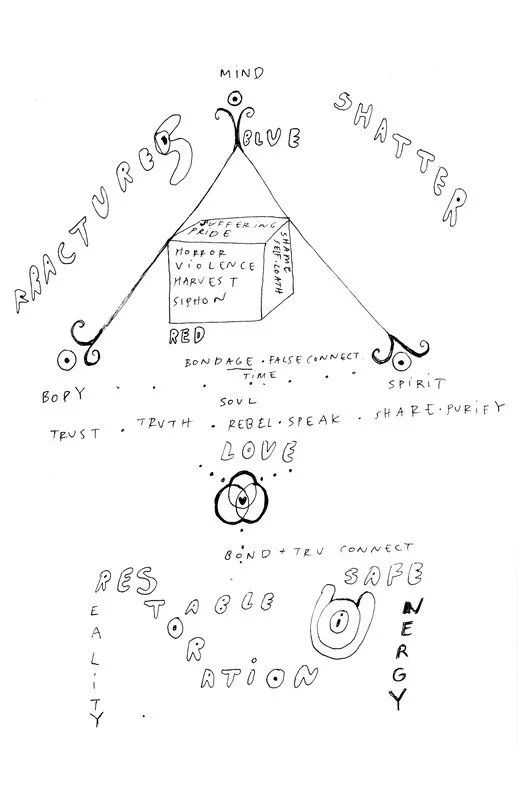 MIND
BLUE
FRACTURES
SHATTER
SUFFERING
PRIDE
SHAME
SELF·LOATH
HORROR
VIOLENCE
HARVEST
SIPHON
RED
BONDAGE · FALSE CONNECT
TIME
BODY
SPIRIT
SOUL
TRUST · TRUTH · REBEL · SPEAK · SHARE · PURIFY
LOVE
BOND + TRU CONNECT
RES
TABLE
O
R
ATION
EALITY
SAFE
i
NERGY